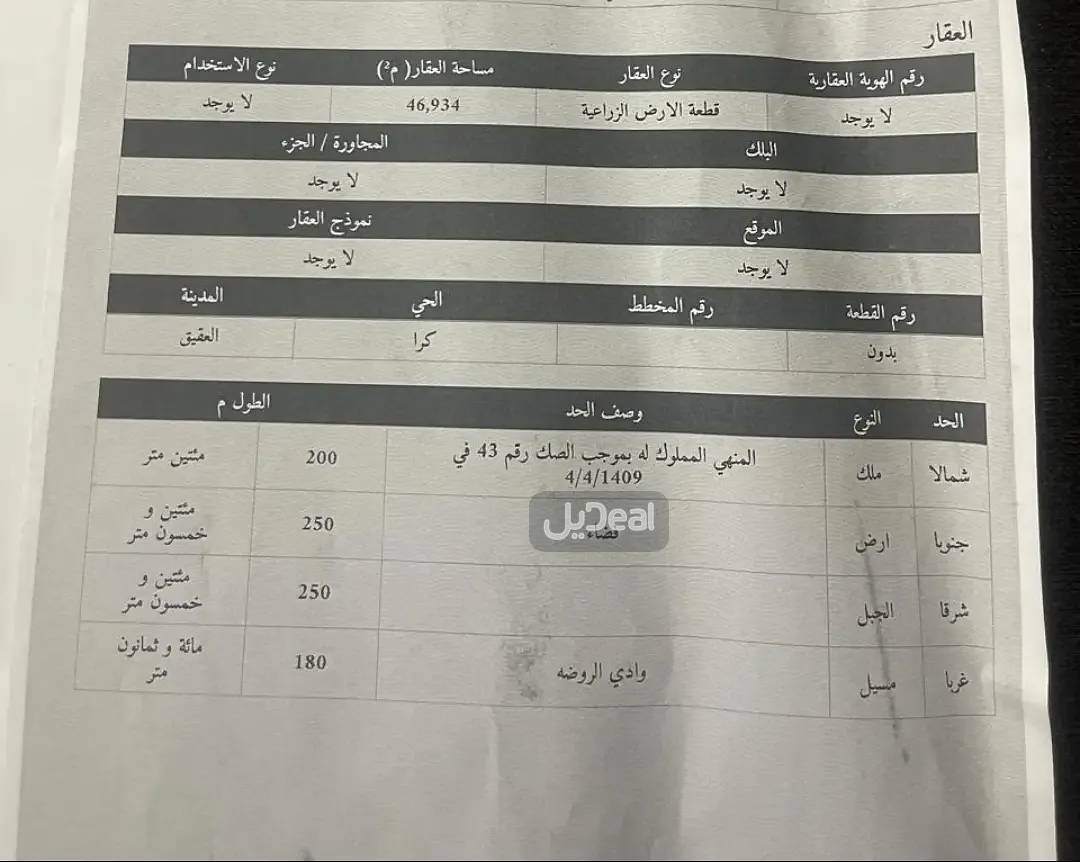 العقار
رقم الهوية العقارية نوع العقار مساحة العقار( م²) نوع الاستخدام
لا يوجد قطعة الارض الزراعية 46,934 لا يوجد
البلك المجاورة / الجزء
لا يوجد لا يوجد
الموقع نموذج العقار
لا يوجد لا يوجد
رقم القطعة رقم المخطط الحي المدينة
بدون كرا العقيق
الحد النوع وصف الحد الطول م
شمالا ملك المنهي المملوك له بموجب الصك رقم 43 في 200 مئتين متر
4/4/1409
جنوبا ارض فضاء 250 مئتين و
خمسون متر
ديل Deal
شرقا الجبل 250 مئتين و
خمسون متر
غربا مسيل وادي الروضه 180 مائة و ثمانون
متر